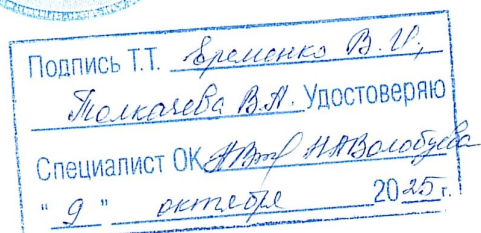 Подпись Т.Т. Еременко В.И,
Толкачева В.А. Удостоверяю
Специалист ОК НАВолобуева
" 9 " октября 2025 г.